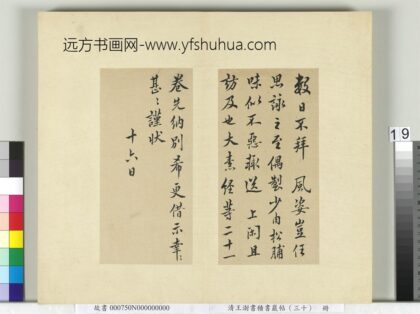 远方书画网-www.yfshuhua.com
數日不拜 風姿豈任
思詠之至偶製少肉松脯
味似不惡輙送 上閑且
訪及也大素經等二十一
卷先納別希更借示幸〻
甚〻謹狀
十六日
19
故書 000750N000000000
清王澍書積書巖帖(三十) 冊